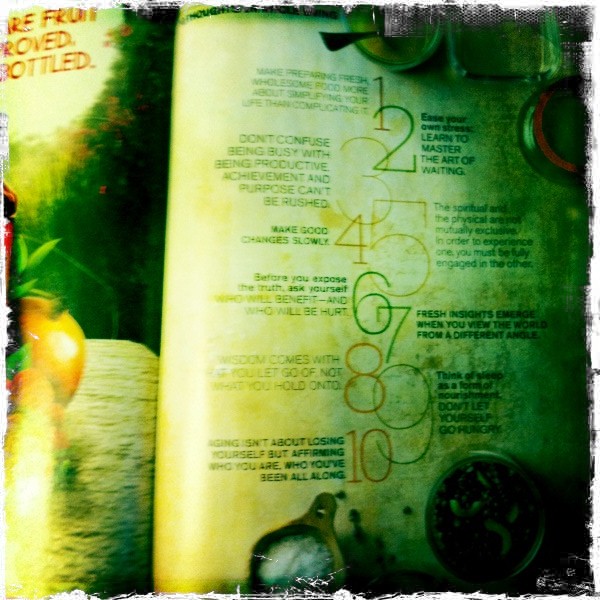 RE FRUIT
ROVED.
OTTLED.
THOUGHTS
MAKE PREPARING FRESH,
WHOLESOME FOOD MORE
ABOUT SIMPLIFYING YOUR
LIFE THAN COMPLICATING IT.
1
2
Ease your
own stress:
LEARN TO
MASTER
THE ART OF
WAITING.
3
DON'T CONFUSE
BEING BUSY WITH
BEING PRODUCTIVE.
ACHIEVEMENT AND
PURPOSE CAN'T
BE RUSHED.
MAKE GOOD
CHANGES SLOWLY.
4
5
The spiritual and
the physical are not
mutually exclusive.
In order to experience
one, you must be fully
engaged in the other.
Before you expose
the truth, ask yourself
WHO WILL BENEFIT—AND
WHO WILL BE HURT.
6
7
FRESH INSIGHTS EMERGE
WHEN YOU VIEW THE WORLD
FROM A DIFFERENT ANGLE.
WISDOM COMES WITH
YOU LET GO OF, NOT
WHAT YOU HOLD ONTO.
8
9
Think of sleep
as a form of
nourishment.
DON'T LET
YOURSELF
GO HUNGRY.
AGING ISN'T ABOUT LOSING
YOURSELF BUT AFFIRMING
WHO YOU ARE, WHO YOU'VE
BEEN ALL ALONG.
10